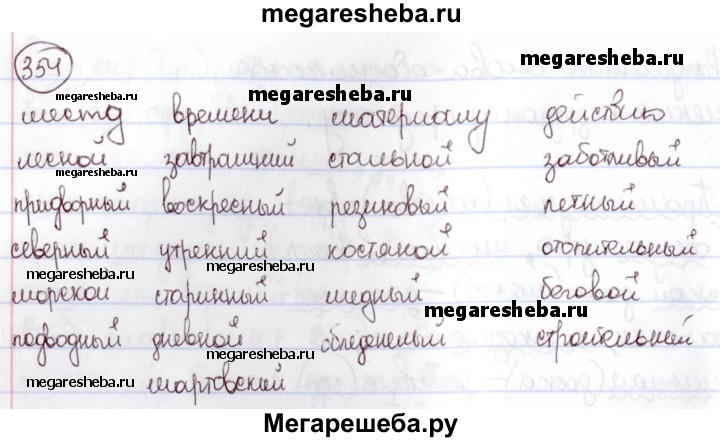 megaresheba.ru
354
megaresheba.ru
megaresheba.ru
megaresheba.ru
месту времени материалу действию
лесной завтрашний стальной заботливый
megaresheba.ru
придворный воскресный резиновый летный
megaresheba.ru
северный утренний костяной отопительный
megaresheba.ru
megaresheba.ru
морской старинный медный беговой
megaresheba.ru
подводный дневной обледенелый строительный
megaresheba.ru
мартовский
megaresheba.ru
Мегарешеба.ру